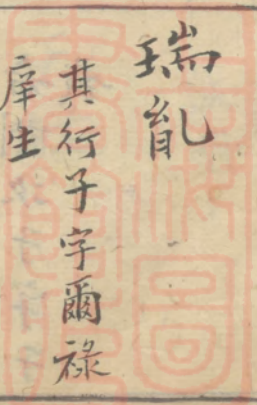 瑞胤
其行子字爾祿
庠生